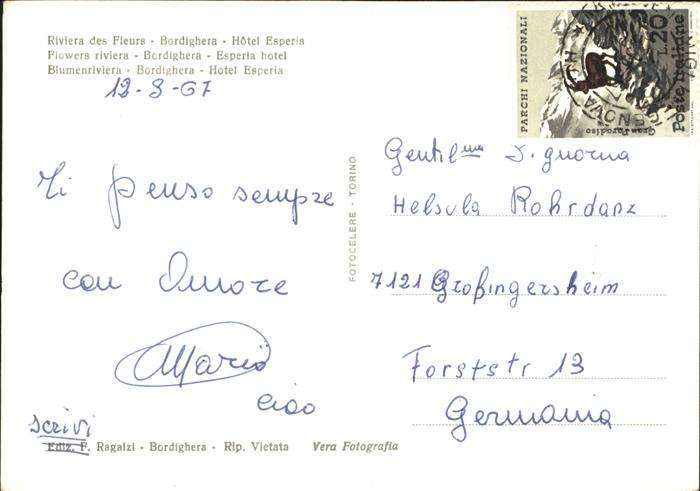 Riviera des Fleurs - Bordighera - Hôtel Esperia
Flowers riviera - Bordighera - Esperia hotel
Blumenriviera - Bordighera - Hotel Esperia
12-8-67
Ti penso sempre
con Amore
Mario
ciao
scrivi
Ediz. F. Ragalzi - Bordighera - Rip. Vietata Vera Fotografia
FOTOCELERE - TORINO
PARCHI NAZIONALI
Gran Paradiso
L.20
Poste Italiane
GENOVA
Gentil.ma Signorina
Helsula Rohrdanz
7121 Großingersheim
Forststr 13
Germania